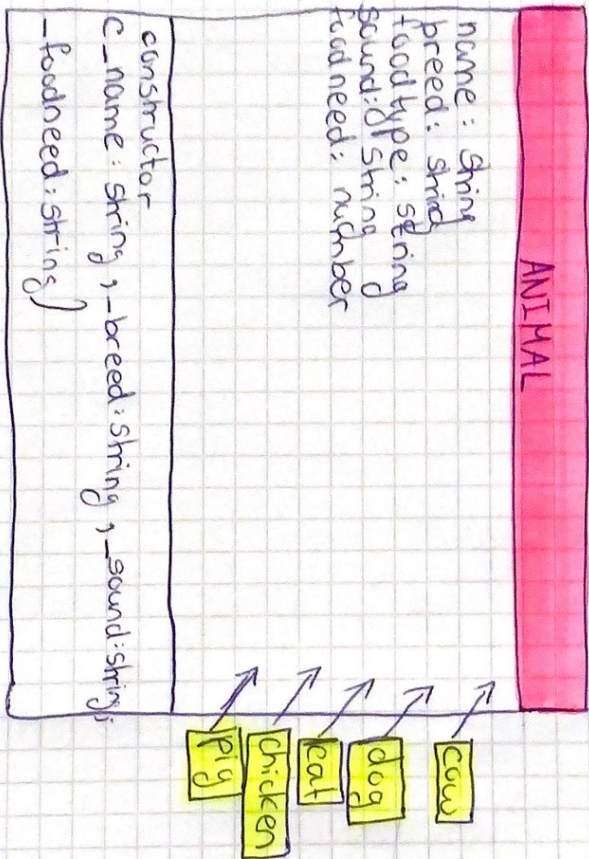 ANIMAL
name : string
breed : string
foodtype : string
sound : string
foodneed : number
constructor
(_name : string , _breed : string , _sound : string,
_foodneed : string)
cow
dog
cat
chicken
pig